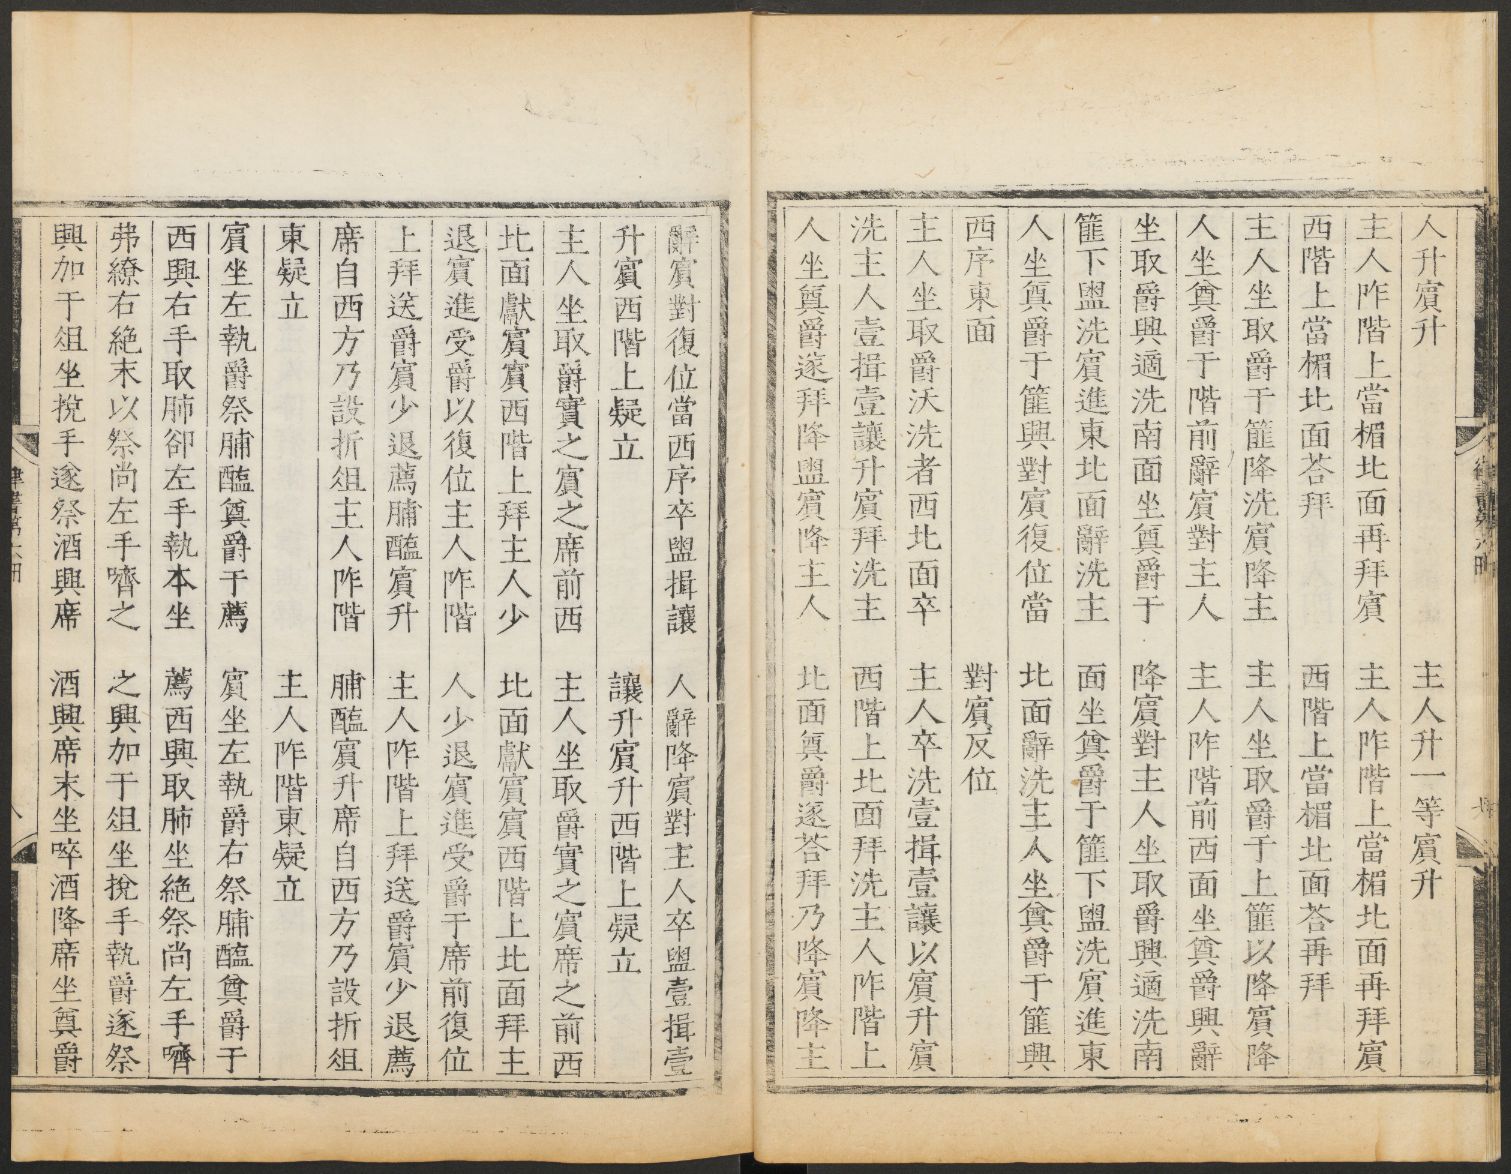 人升賓升　主人升一等賓升
主人阼階上當楣北面再拜賓　主人阼階上當楣北面再拜賓
西階上當楣北面荅拜　西階上當楣北面荅再拜
主人坐取爵于篚降洗賓降主　主人坐取爵于上篚以降賓降
人坐奠爵于階前辭賓對主人　主人阼階前西面坐奠爵興辭
坐取爵興適洗南面坐奠爵于　降賓對主人坐取爵興適洗南
篚下盥洗賓進東北面辭洗主　面坐奠爵于篚下盥洗賓進東
人坐奠爵于篚興對賓復位當　北面辭洗主人坐奠爵于篚興
西序東面　對賓反位
主人坐取爵沃洗者西北面卒　主人卒洗壹揖壹讓以賓升賓
洗主人壹揖壹讓升賓拜洗主　西階上北面拜洗主人阼階上
人坐奠爵遂拜降盥賓降主人　北面奠爵遂荅拜乃降賓降主
辭賓對復位當西序卒盥揖讓　人辭降賓對主人卒盥壹揖壹
升賓西階上疑立　讓升賓升西階上疑立
主人坐取爵實之賓之席前西　主人坐取爵實之賓席之前西
北面獻賓賓西階上拜主人少　北面獻賓賓西階上北面拜主
退賓進受爵以復位主人阼階　人少退賓進受爵于席前復位
上拜送爵賓少退薦脯醢賓升　主人阼階上拜送爵賓少退薦
席自西方乃設折俎主人阼階　脯醢賓升席自西方乃設折俎
東疑立　主人阼階東疑立
賓坐左執爵祭脯醢奠爵于薦　賓坐左執爵右祭脯醢奠爵于
西興右手取肺卻左手執本坐　薦西興取肺坐絶祭尚左手嚌
弗繚右絶末以祭尚左手嚌之　之興加于俎坐挩手執爵遂祭
興加于俎坐挩手遂祭酒興席　酒興席末坐啐酒降席坐奠爵
律書第六冊